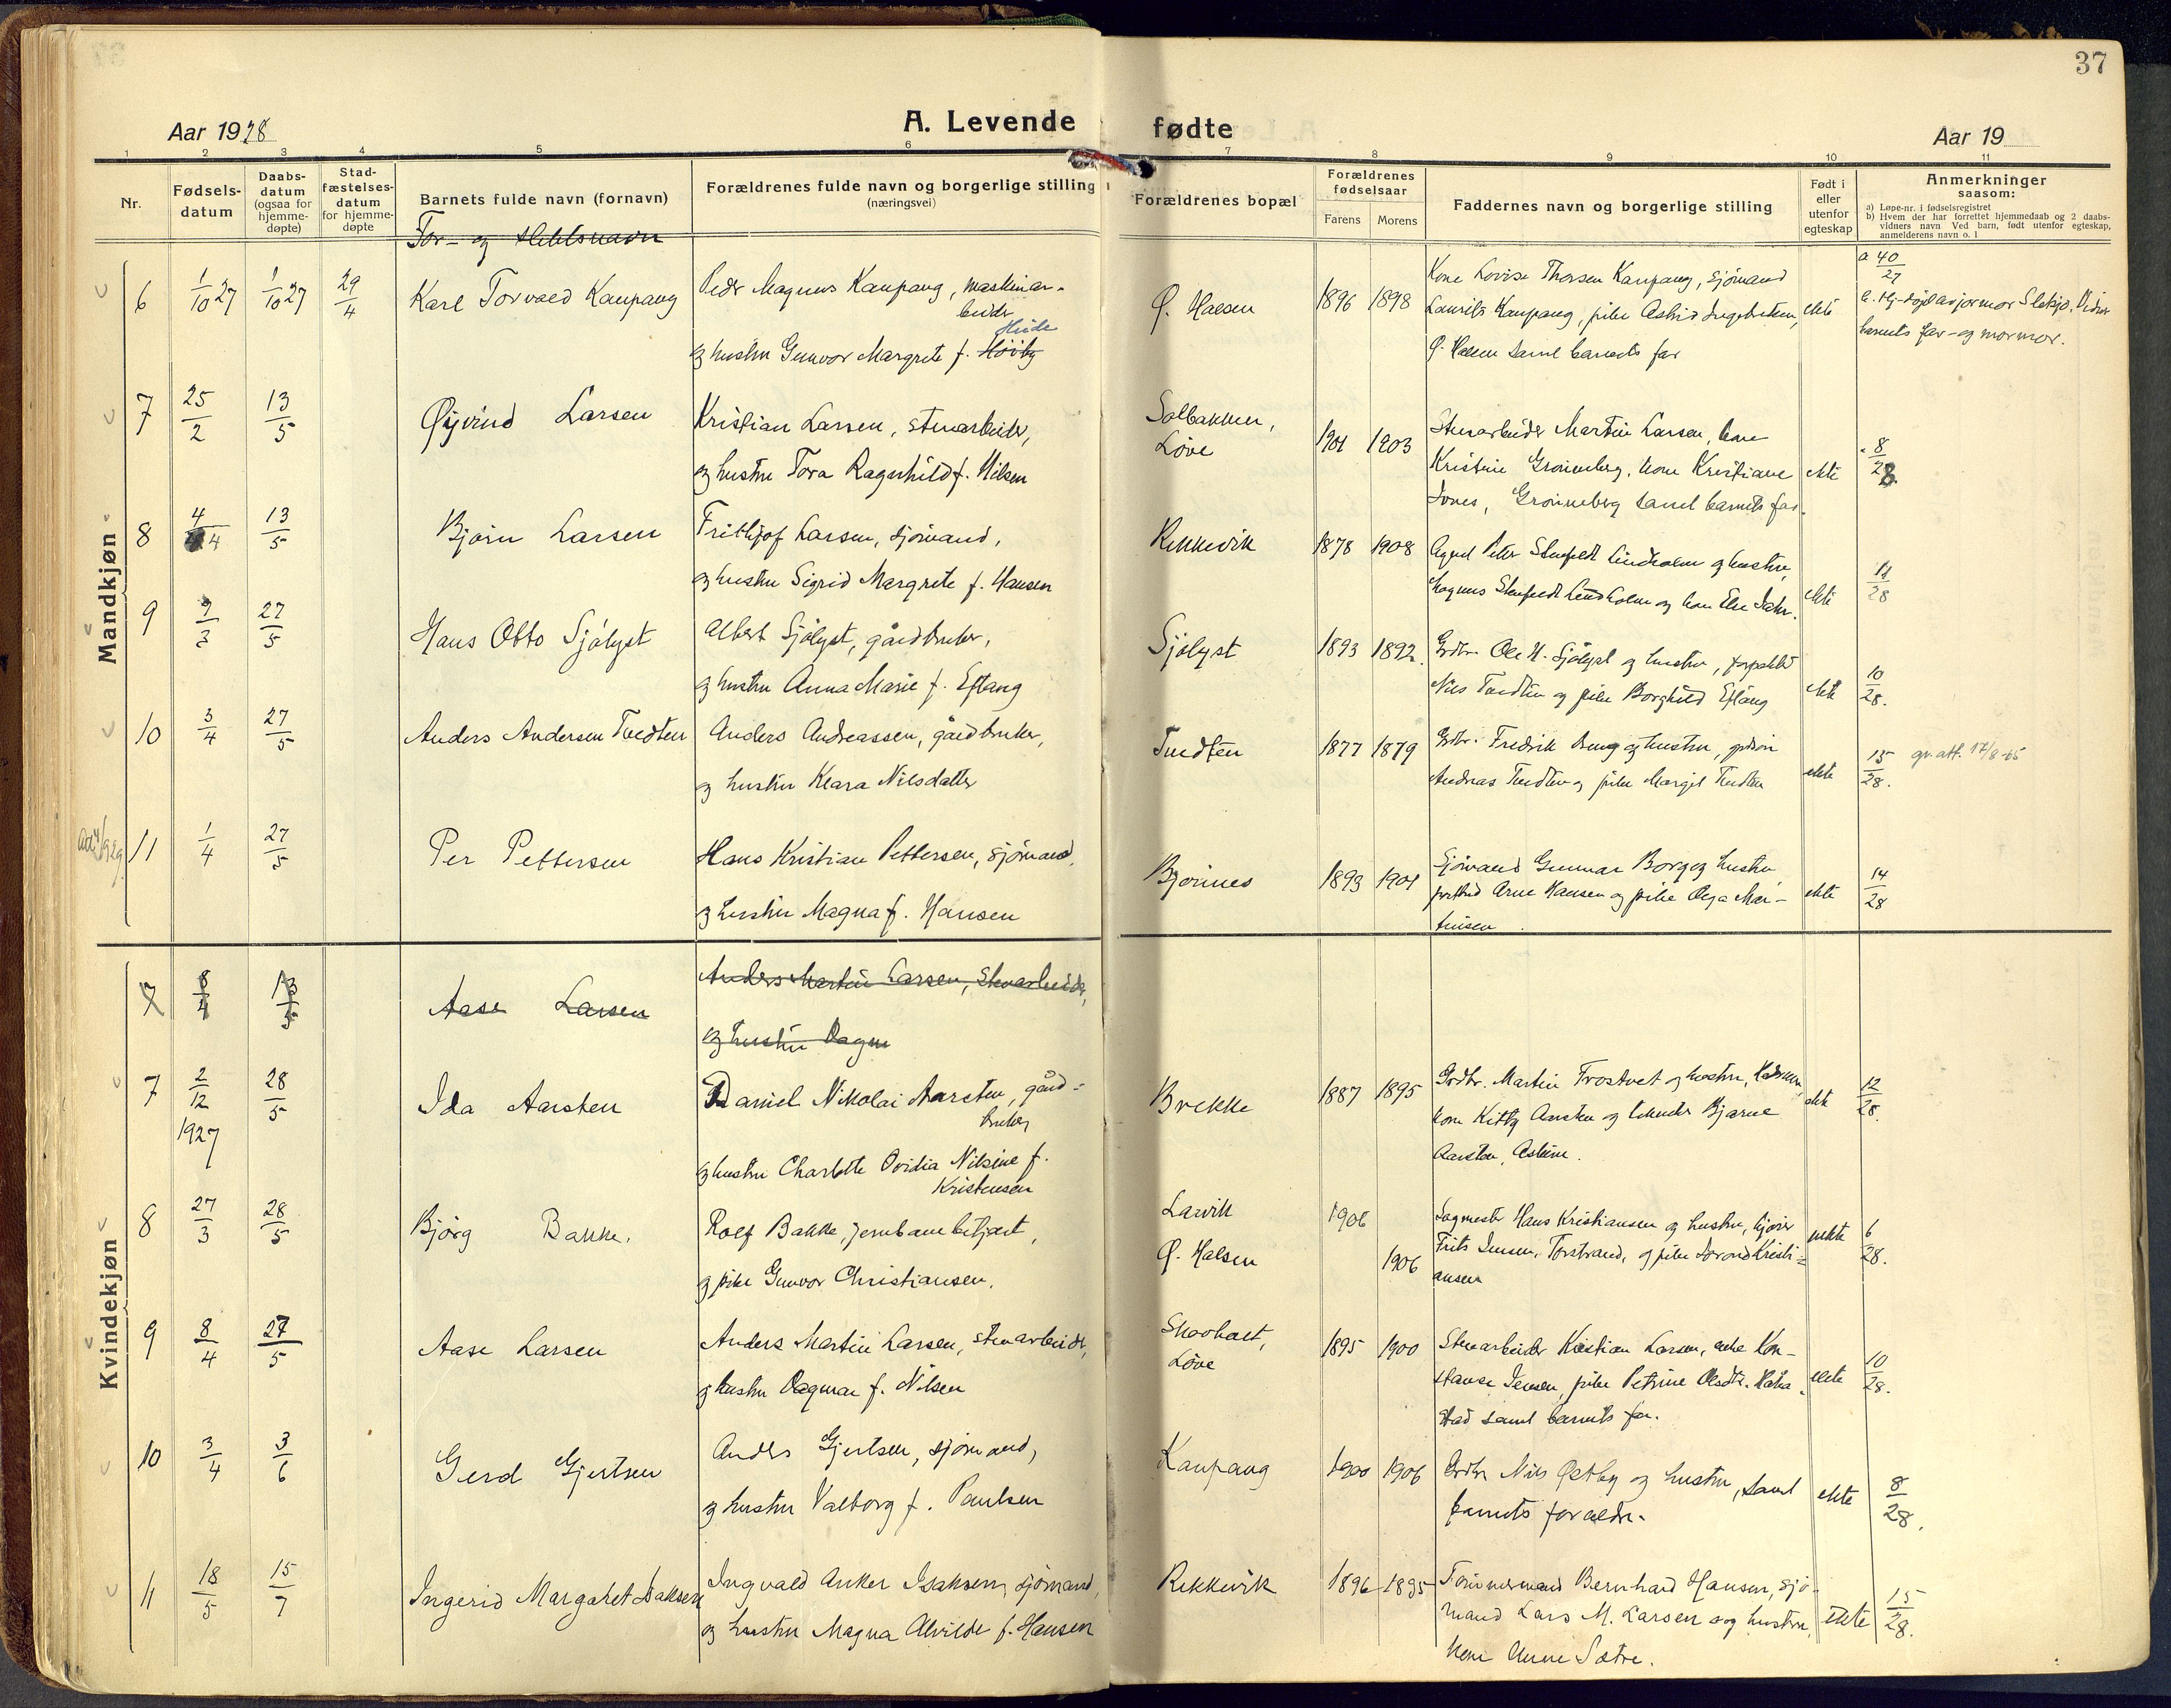 37
Aar 1928
A. Levende fødte
Aar 19
1 2 3 4 5 6 7 8 9 10 11
Nr.
Fødsels-
datum
Daabs-
datum
(ogsaa for
hjemme-
døpte)
Stad-
fæstelses-
datum
for hjemme-
døpte
Barnets fulde navn (fornavn)
For- og
Forældrenes fulde navn og borgerlige stilling
(næringsvei)
Forældrenes bopæl
Forældrenes
fødselsaar
Farens Morens
Faddernes navn og borgerlige stilling
Født i
eller
utenfor
egteskap
Anmerkninger
saasom:
a) Løpe-nr. i fødselsregistret
b) Hvem der har forrettet hjemmedaab og 2 daabs-
vidners navn Ved barn, født utenfor egteskap,
anmelderens navn o. l
Mandkjøn
6 1/10 27 1/10 27 29/4 Karl Torvald Kaupang
Peder Magnus Kaupang, maskinar-
beider
Hide
og hustru Gunvor Margrete f. Høiby
Ø. Halsen 1896 1898
Kone Lovise Thorsen Kaupang, sjømand
Laurits Kaupang, pike Astrid Ingebretsen,
Ø. Halsen samt barnets far
ekte
a 40/27
barnets far- og mormor.
7 25/2 13/5 Øyvind Larsen
Kristian Larsen, stenarbeider,
og hustru Tora Ragnhild f. Nilsen
Solbakken,
Løve
1901 1903
Stenarbeider Martin Larsen, kone
Kristine Grønneberg, kone Kristiane
Jones, Grønneberg samt barnets far.
ekte
8/28
8 4/4 13/5 Bjørn Larsen
Frithjof Larsen, sjømand,
og hustru Sigrid Margrete f. Hansen
Rekkevik 1878 1908
Agent Peter Stenfeldt Lindholm og hustru,
Magnus Stenfeldt Lindholm og kone Else Jahr.
ekte
11/28
9 9/3 27/5 Hans Otto Sjølyst
Albert Sjølyst, gårdbruker,
og hustru Anna Marie f. Eftang
Sjølyst 1893 1892
Grdbr. Ole H. Sjølyst og hustru, forpakter
Nils Tvedten og pike Borghild Eftang
ekte
10/28.
10 3/4 27/5 Anders Andersen Tvedten
Anders Andreassen, gårdbruker,
og hustru Klara Nilsdatter
Tvedten 1877 1879
Grdbr. Fredrik Breug og hustru,
Andreas Tvedten og pike Margit Tvedten
ekte
15/28. gr. att. 17/8-65
11 1/4 27/5 Per Pettersen
Hans Kristian Pettersen, sjømand,
og hustru Magna f. Hansen
Bjønnes 1893 1901
Sjømand Gunnar Borg og hustru,
Arne Hansen og pike Olga Mar-
tinsen.
ekte
14/28
Kvindekjøn
7 8/4 13/5 Aase Larsen
Anders Martin Larsen, Stenarbeider,
og hustru Dagm
7 2/12 1927 28/5 Ida Aarsten
Daniel Nikolai Aarsten, gård-
bruker
og hustru Charlotte Ovidia Nilsine f.
Kristensen
Brekke 1887 1895
Grdbr. Martin Trostvet og hustru, Hedrum,
kone Kitty Aarsten og Bjarne
Aarsten,
ekte
12/28.
8 27/3 28/5 Bjørg Bakke.
Rolf Bakke, jernbanebetjent,
og pike Gunvor Christiansen.
Larvik
Ø. Halsen
1906
1906
Sagmester Hans Kristiansen og hustru,
Frits Jensen, Torstrand, og pike Jorand Kristi-
ansen
uekte
6/28.
9 8/4 27/5 Aase Larsen
Anders Martin Larsen, stenarbeider,
og hustru Dagmar f. Nilsen
Skovholt,
Løve
1895 1900
Stenarbeider Kristian Larsen, enke Kon-
stanse Jensen, pike Petrine Olsdtr. Håka-
stad samt barnets far.
ekte
10/28.
10 3/4 3/6 Gerd Gjertsen
Anders Gjertsen, sjømand,
og hustru Valborg f. Paulsen
Kaupang 1900 1906
Grdbr Nils Østby og hustru, samt
barnets forældre.
ekte
8/28.
11 18/5 15/7 Ingerid Margaret Isaksen
Ingvald Anker Isaksen, sjømand,
og hustru Magna Alvilde f. Hansen
Rekkevik 1896 1895
Tømmermand Bernhard Hansen, sjø-
mand Lars M. Larsen og hustru,
kone Unne Sætre.
ekte
15/28.